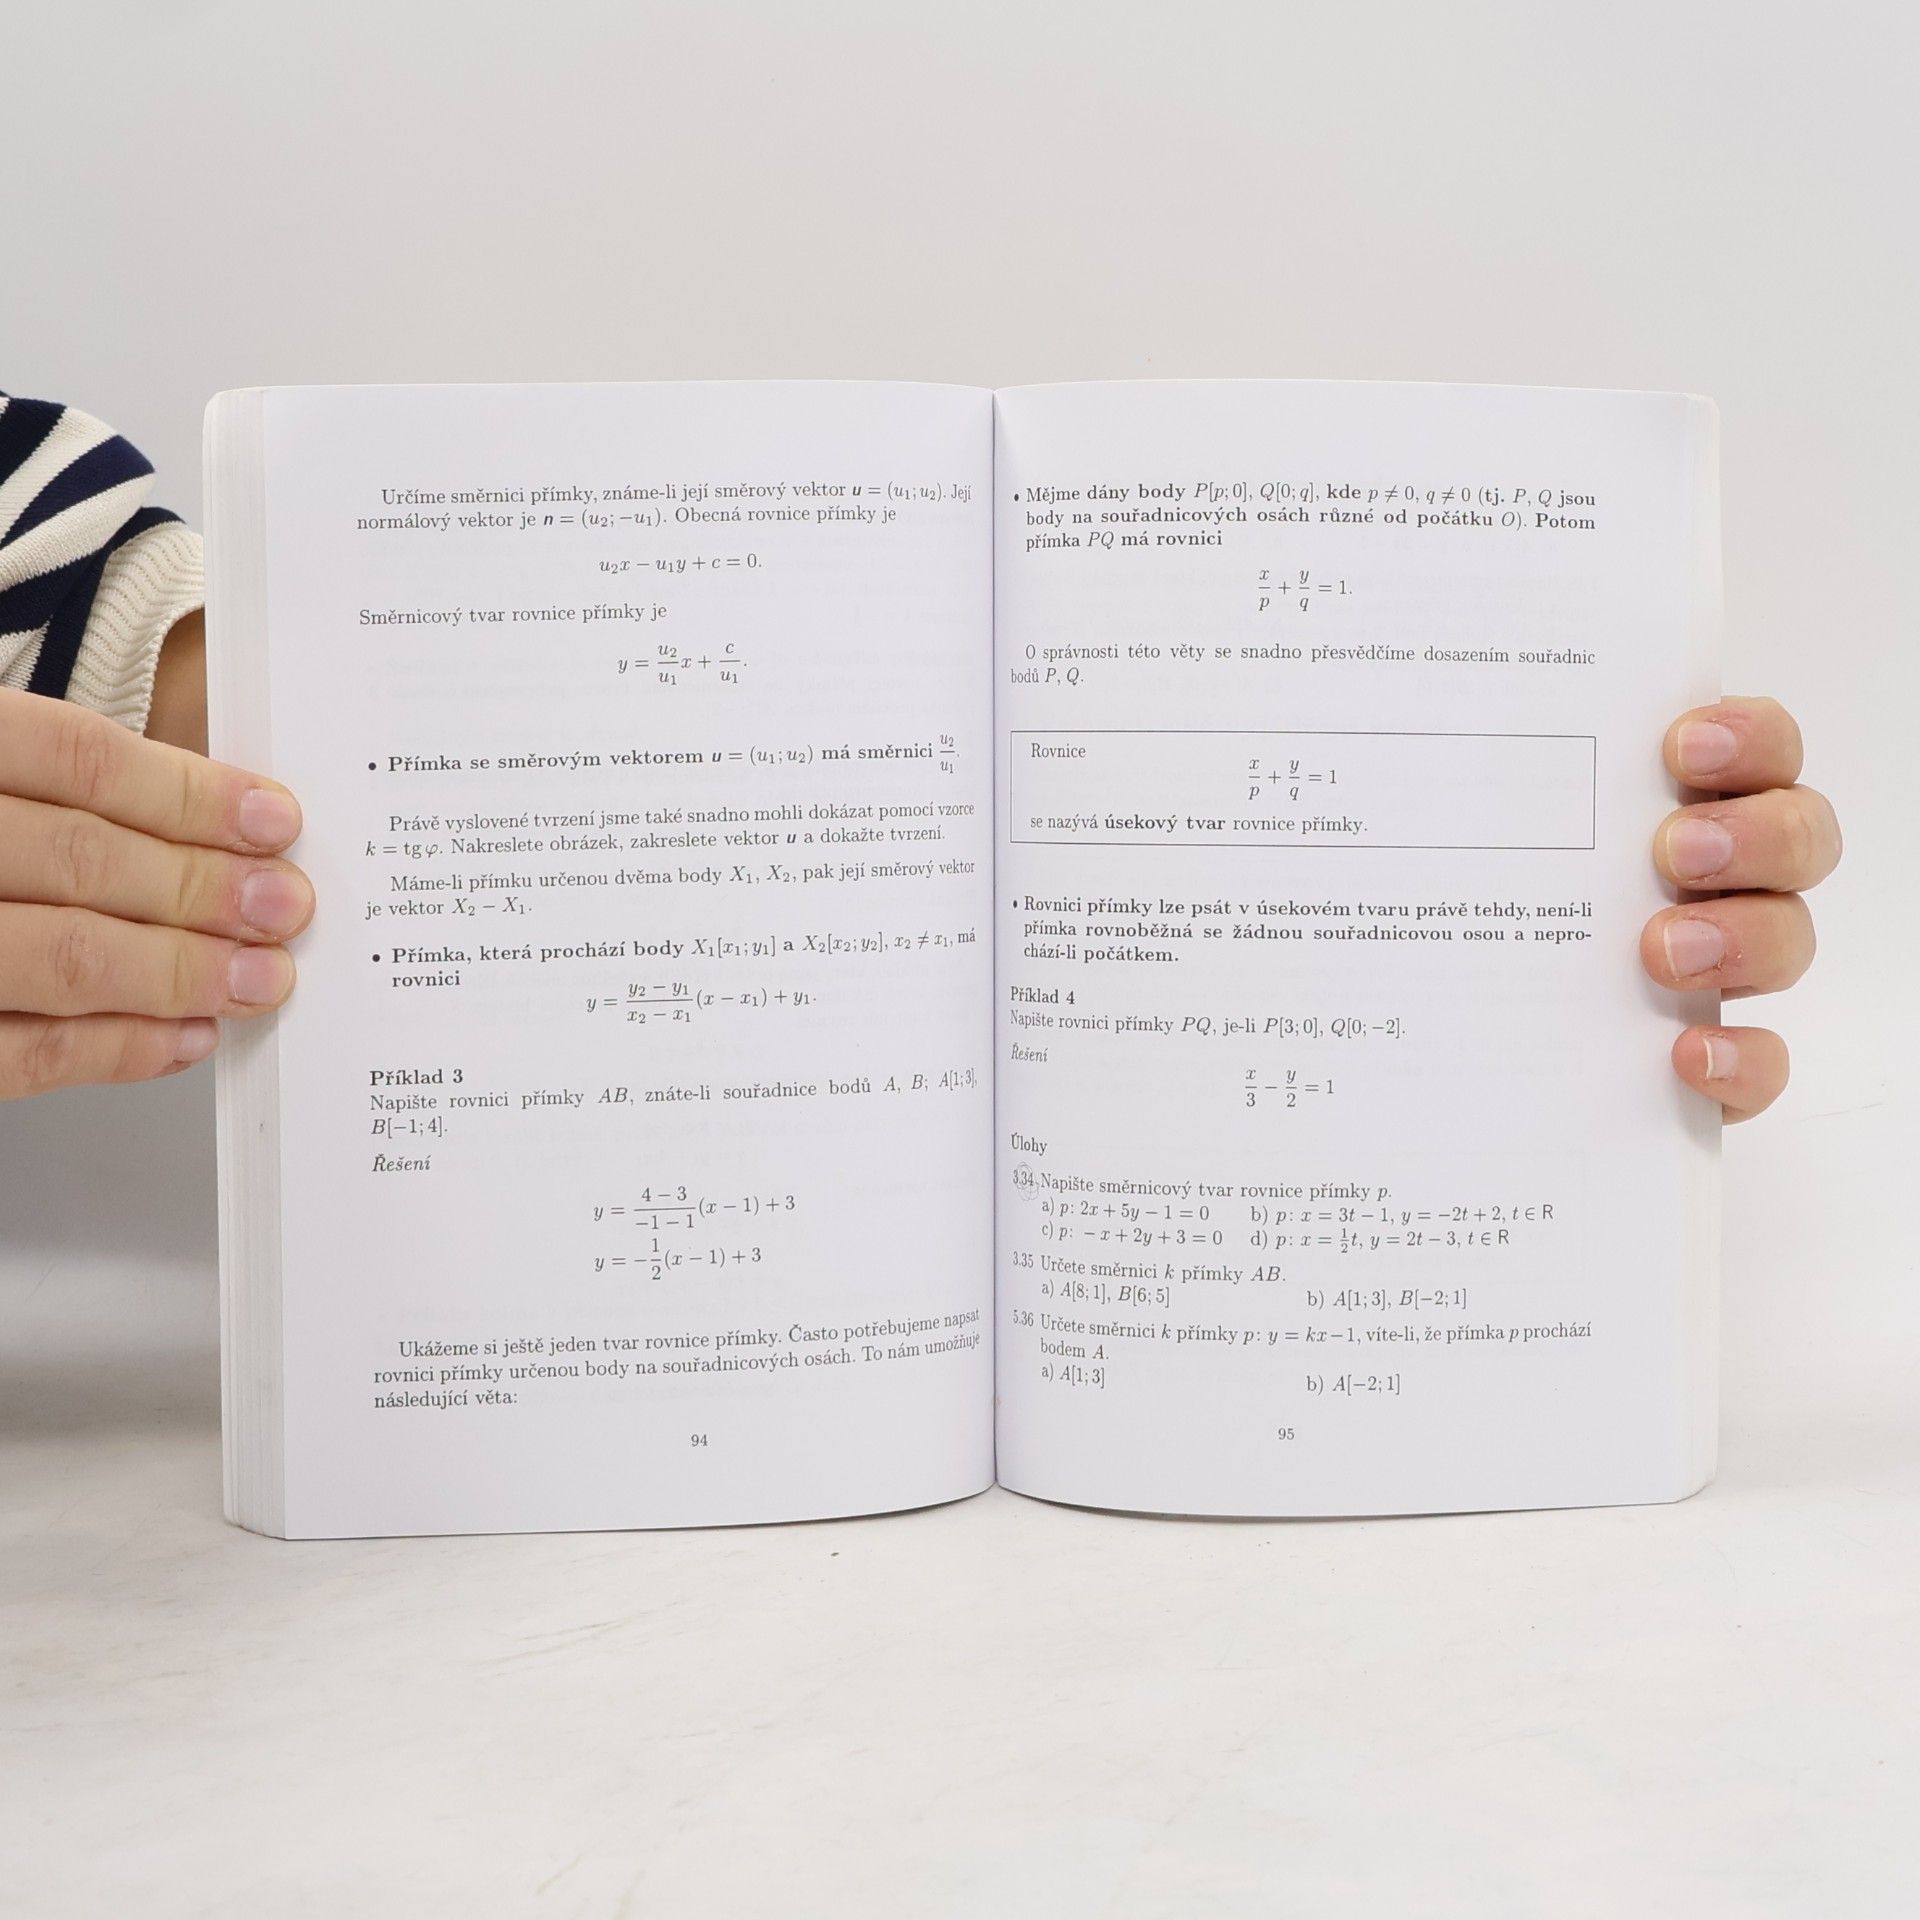 Určíme směrnici přímky, známe-li její směrový vektor u = (u₁; u₂). Její
normálový vektor je n = (u₂; −u₁). Obecná rovnice přímky je
u₂x − u₁y + c = 0.
Směrnicový tvar rovnice přímky je
y = u₂/u₁ x + c/u₁.
• Přímka se směrovým vektorem u = (u₁; u₂) má směrnici u₂/u₁.
Právě vyslovené tvrzení jsme také snadno mohli dokázat pomocí vzorce
k = tg φ. Nakreslete obrázek, zakreslete vektor u a dokažte tvrzení.
Máme-li přímku určenou dvěma body X₁, X₂, pak její směrový vektor
je vektor X₂ − X₁.
• Přímka, která prochází body X₁[x₁; y₁] a X₂[x₂; y₂], x₂ ≠ x₁, má
rovnici
y = (y₂ − y₁)/(x₂ − x₁) (x − x₁) + y₁.
Příklad 3
Napište rovnici přímky AB, znáte-li souřadnice bodů A, B; A[1; 3],
B[−1; 4].
Řešení
y = (4 − 3)/(−1 − 1) (x − 1) + 3
y = −1/2 (x − 1) + 3
Ukážeme si ještě jeden tvar rovnice přímky. Často potřebujeme napsat
rovnici přímky určenou body na souřadnicových osách. To nám umožňuje
následující věta:
94
• Mějme dány body P[p; 0], Q[0; q], kde p ≠ 0, q ≠ 0 (tj. P, Q jsou
body na souřadnicových osách různé od počátku O). Potom
přímka PQ má rovnici
x/p + y/q = 1.
O správnosti této věty se snadno přesvědčíme dosazením souřadnic
bodů P, Q.
Rovnice
x/p + y/q = 1
se nazývá úsekový tvar rovnice přímky.
• Rovnici přímky lze psát v úsekovém tvaru právě tehdy, není-li
přímka rovnoběžná se žádnou souřadnicovou osou a nepro-
chází-li počátkem.
Příklad 4
Napište rovnici přímky PQ, je-li P[3; 0], Q[0; −2].
Řešení
x/3 − y/2 = 1
Úlohy
3.34 Napište směrnicový tvar rovnice přímky p.
a) p: 2x + 5y − 1 = 0 b) p: x = 3t − 1, y = −2t + 2, t ∈ R
c) p: − x + 2y + 3 = 0 d) p: x = ½t, y = 2t − 3, t ∈ R
3.35 Určete směrnici k přímky AB.
a) A[8; 1], B[6; 5] b) A[1; 3], B[−2; 1]
5.36 Určete směrnici k přímky p: y = kx − 1, víte-li, že přímka p prochází
bodem A.
a) A[1; 3] b) A[−2; 1]
95